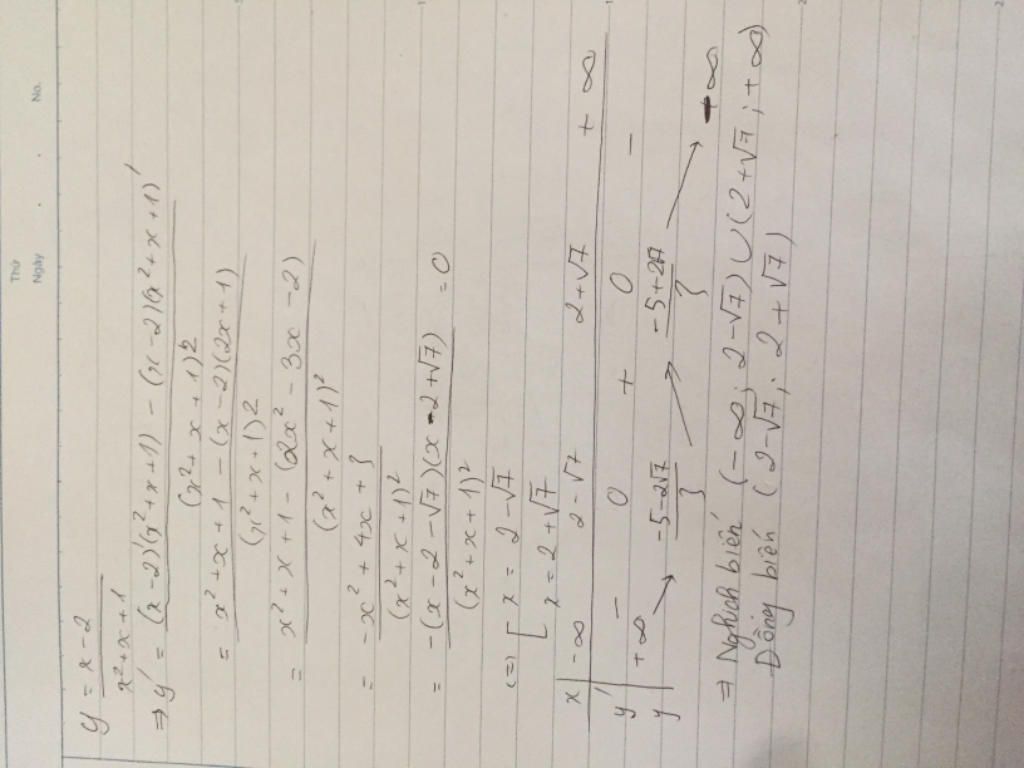 Thứ
Ngày . . No.
y = x - 2
x² + x + 1
⇒ y' = (x - 2)'(x² + x + 1) - (x - 2)(x² + x + 1)'
(x² + x + 1)²
= x² + x + 1 - (x - 2)(2x + 1)
(x² + x + 1)²
= x² + x + 1 - (2x² - 3x - 2)
(x² + x + 1)²
= -x² + 4x + 3
(x² + x + 1)²
= -(x - 2 - √7)(x - 2 + √7) = 0
(x² + x + 1)²
(=) [ x = 2 - √7
x = 2 + √7
x -∞ 2 - √7 2 + √7 + ∞
y' - 0 + 0 -
y +∞ -5 - 2√7 -5 + 2√7 -∞
3 3
⇒ Nghịch biến (-∞; 2 - √7) ∪ (2 + √7; +∞)
Đồng biến (2 - √7; 2 + √7)